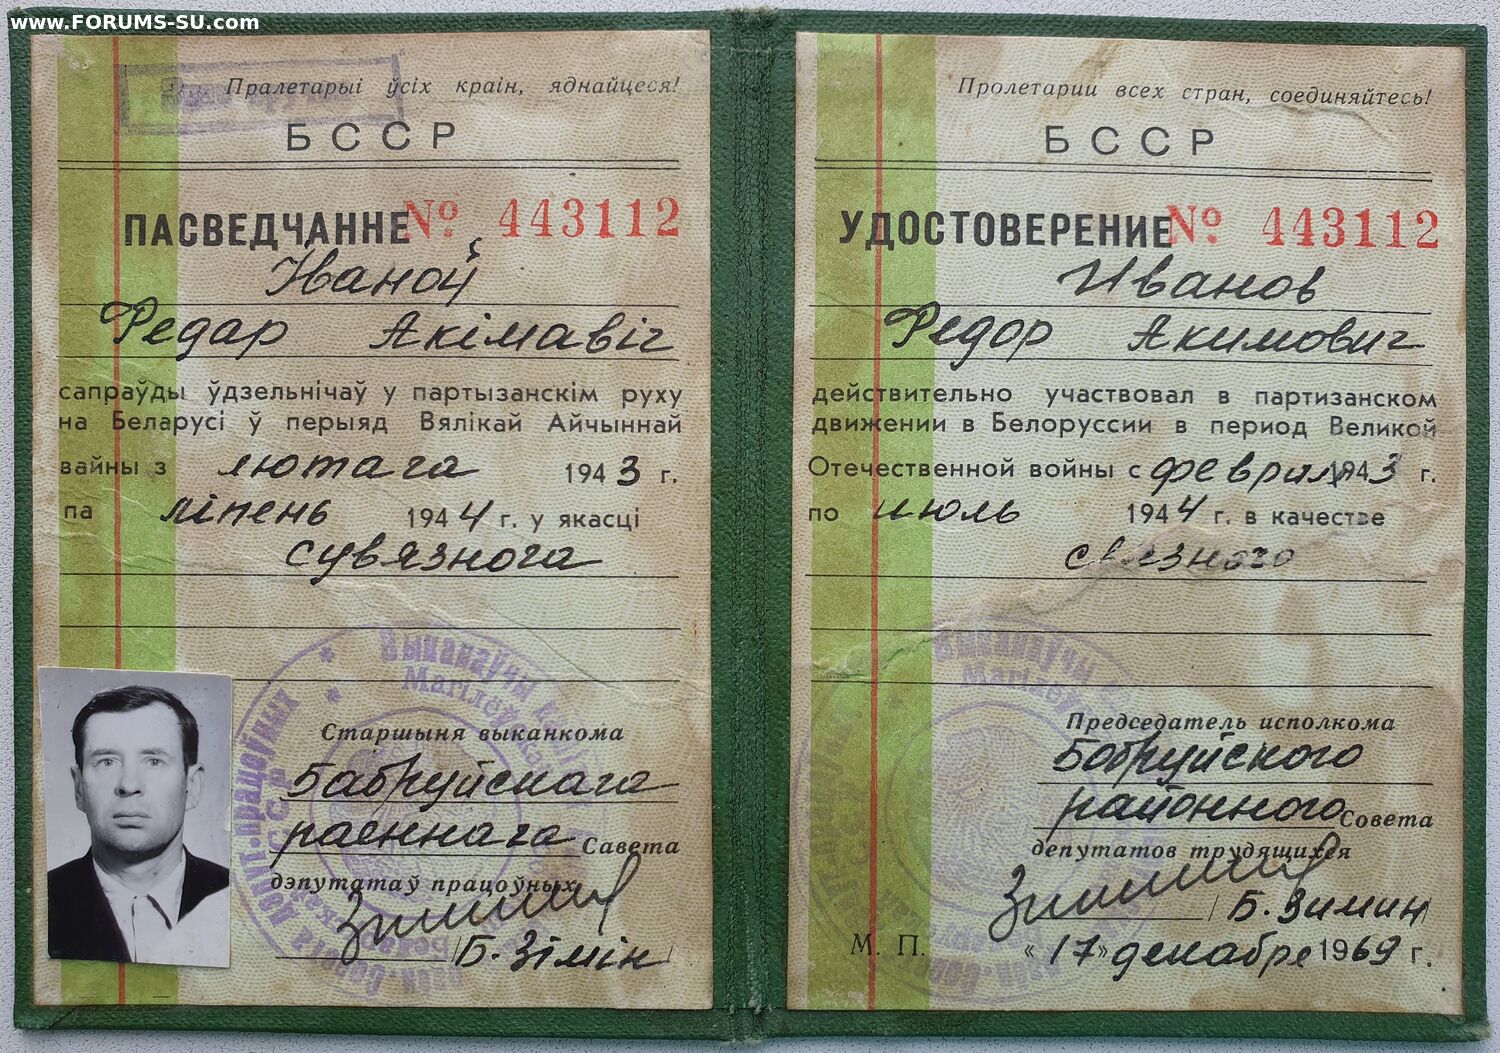 www.FORUMS-SU.com
Пралетарыі ўсіх краін, яднайцеся!
БССР
ПАСВЕДЧАННЕ № 443112
Іваноў
Федар Акімавіч
сапраўды ўдзельнічаў у партызанскім руху
на Беларусі ў перыяд Вялікай Айчыннай
вайны з лютага 1943 г.
па ліпень 1944 г. у якасці
сувязнога
Старшыня выканкома
Бабруйскага
раённага Савета
дэпутатаў працоўных
Б. Зімін
Выканаўчы
Магілёўская
дэпут. працоўных
Пролетарии всех стран, соединяйтесь!
БССР
УДОСТОВЕРЕНИЕ № 443112
Иванов
Федор Акимович
действительно участвовал в партизанском
движении в Белоруссии в период Великой
Отечественной войны с февраля 1943 г.
по июль 1944 г. в качестве
связного
Председатель исполкома
Бобруйского
районного Совета
депутатов трудящихся
Б. Зимин
М. П. «17» декабря 1969 г.
Выканаўчы